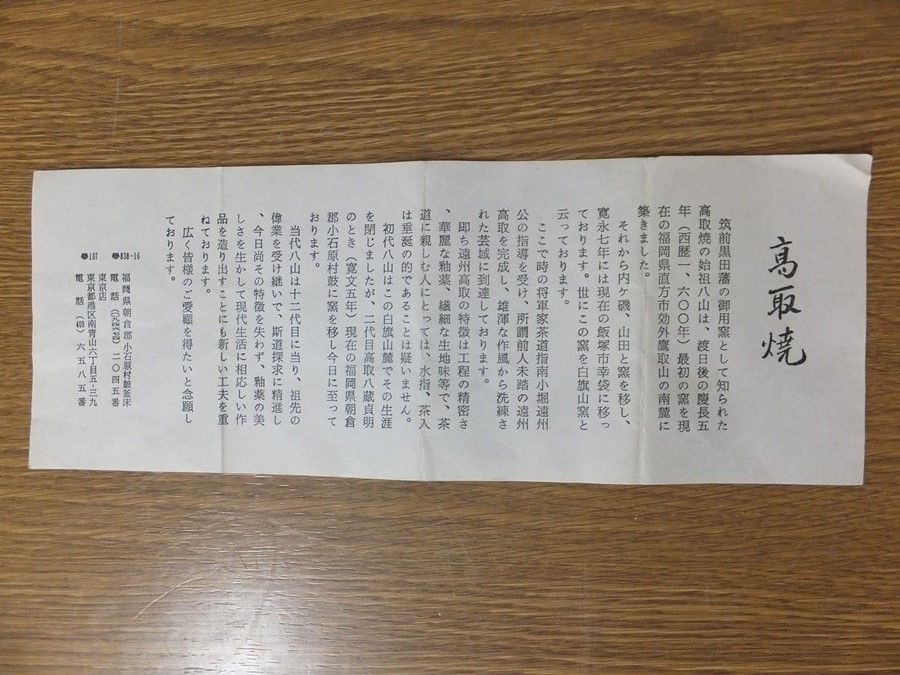 高取焼
筑前黒田藩の御用窯として知られた
高取焼の始祖八山は、渡日後の慶長五
年（西歴一、六〇〇年）最初の窯を現
在の福岡県直方市効外鷹取山の南麓に
築きました。
それから内ケ磯、山田と窯を移し、
寛永七年には現在の飯塚市幸袋に移っ
ております。世にこの窯を白旗山窯と
云っております。
ここで時の将軍家茶道指南小堀遠州
公の指導を受け、所謂前人未踏の遠州
高取を完成し、雄渾な作風から洗練さ
れた芸域に到達しております。
即ち遠州高取の特徴は工程の精密さ
、華麗な釉薬、繊細な生地味等で、茶
道に親しむ人にとっては、水指、茶入
は垂涎の的であることは疑いません。
初代八山はこの白旗山麓でその生涯
を閉じましたが、二代目高取八蔵貞明
のとき（寛文五年）現在の福岡県朝倉
郡小石原村鼓に窯を移し今日に至って
おります。
当代八山は十二代目に当り、祖先の
偉業を受け継いで、斯道探求に精進し
、今日尚その特徴を失わず、釉薬の美
しさを生かして現代生活に相応しい作
品を造り出すことにも新しい工夫を重
ねております。
広く皆様のご愛顧を得たいと念願し
ております。
838-16 福岡県朝倉郡小石原村鼓釜床
電話 二〇四五番
東京店
107 東京都港区南青山六丁目五-三九
電話（400）六五八五番